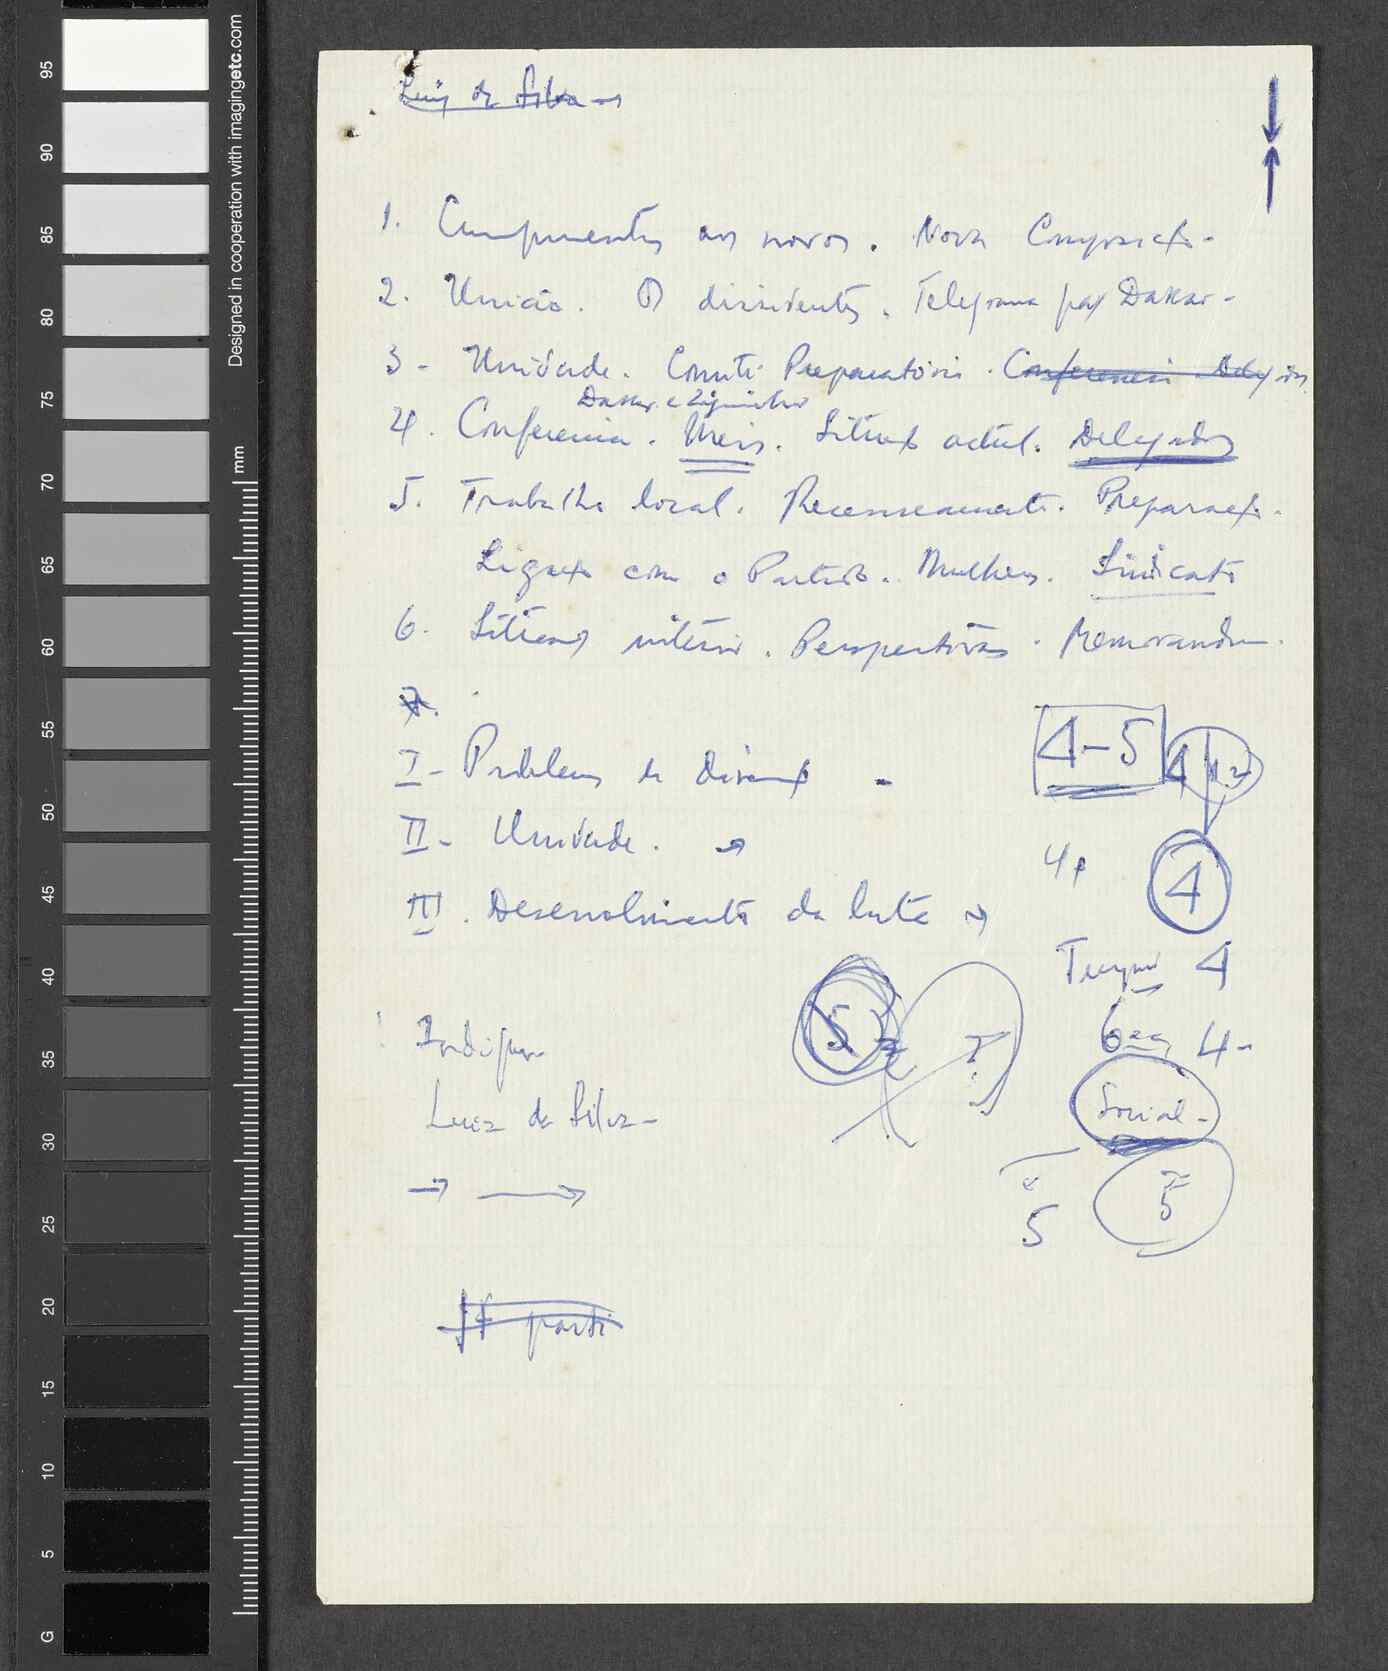 Luiz da Silva →
1. Cumprimentos aos novos. Nova Composição.
2. União. Os dissidentes. Telegrama para Dakar.
3 - Unidade. Comité Preparatório. Conferencia Delegados
Dakar e Ziguinchor
4. Conferencia. Meios. Situação actual. Delegados
5. Trabalho local. Recenseamento. Preparação.
Ligação com o Partido. Mulheres. Sindicato
6. Situação interior. Perspectivas. Memorandum.
7.
I - Problemas da direcção -
4-5
II - Unidade. →
4p
4
III. Desenvolvimento da luta →
4
5
4-
Luiz da Silva -
Social -
→ →
5
5
95
90
85
80
75
70
65
60
55
50
45
40
35
30
25
20
15
10
5
G
mm
Designed in cooperation with imagingetc.com